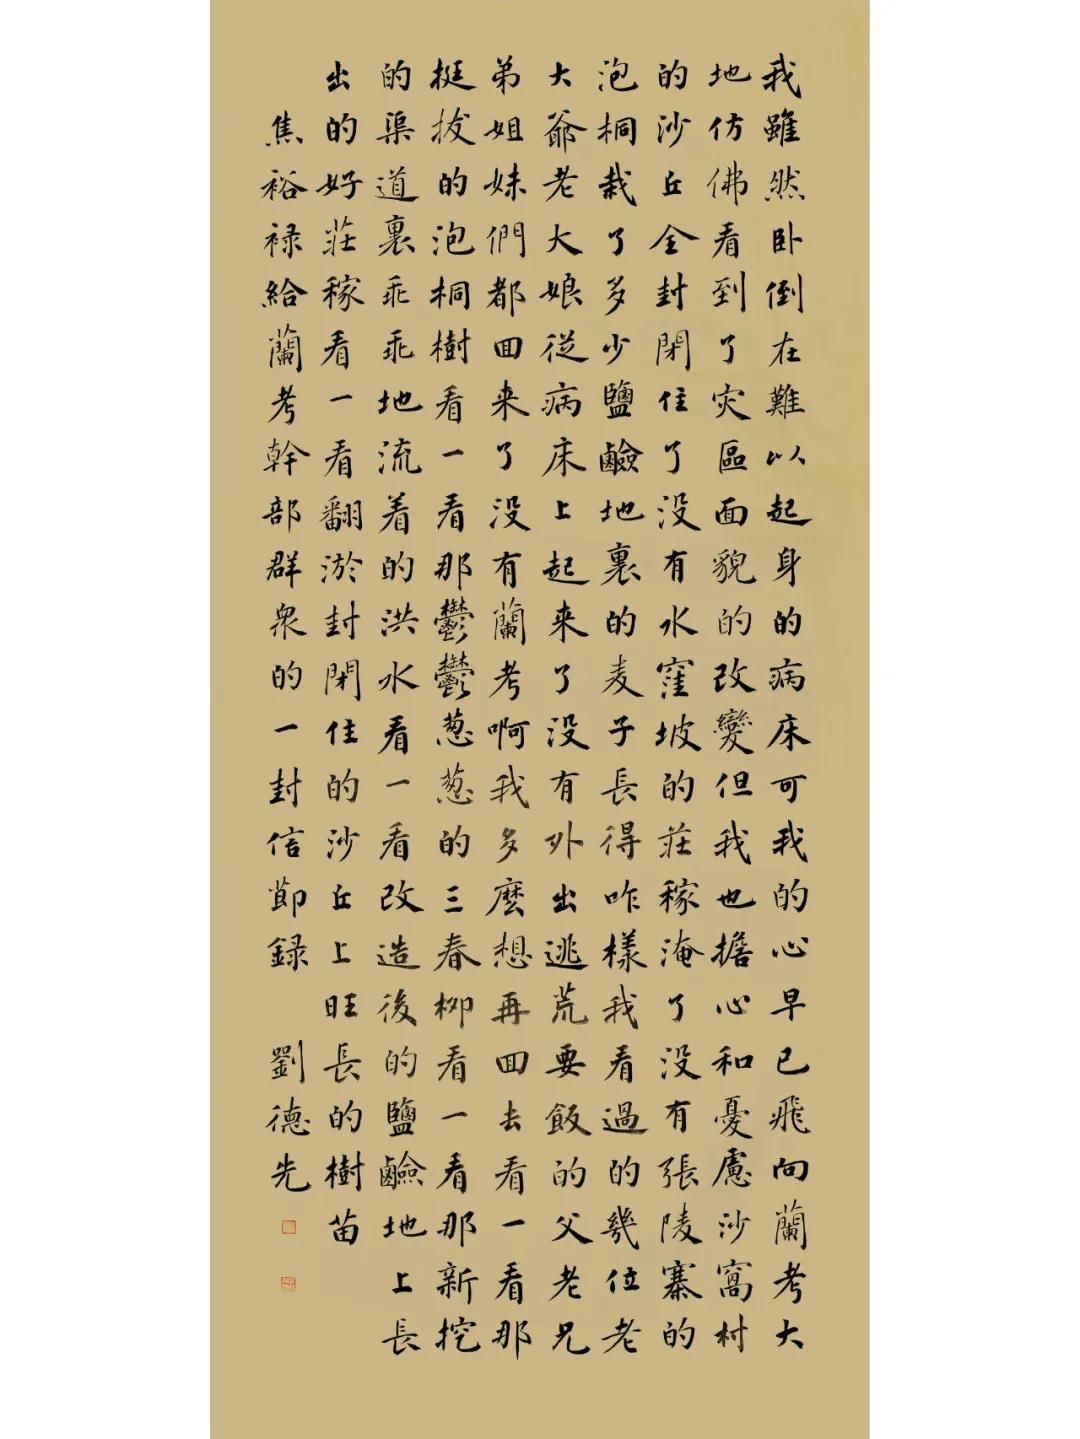 我雖然卧倒在難以起身的病床可我的心早已飛向蘭考大
地仿佛看到了灾區面貌的改變但我也擔心和憂慮沙窩村
的沙丘全封閉住了没有水窪坡的莊稼淹了没有張陵寨的
泡桐栽了多少鹽鹼地裏的麦子長得咋樣我看過的幾位老
大爺老大娘從病床上起来了没有外出逃荒要飯的父老兄
弟姐妹們都回来了没有蘭考啊我多麼想再回去看一看那
挺拔的泡桐樹看一看那鬱鬱葱葱的三春柳看一看那新挖
的渠道裏乖乖地流着的洪水看一看改造後的鹽鹼地上長
出的好莊稼看一看翻淤封閉住的沙丘上旺長的樹苗
焦裕禄給蘭考幹部群衆的一封信節録 劉德先